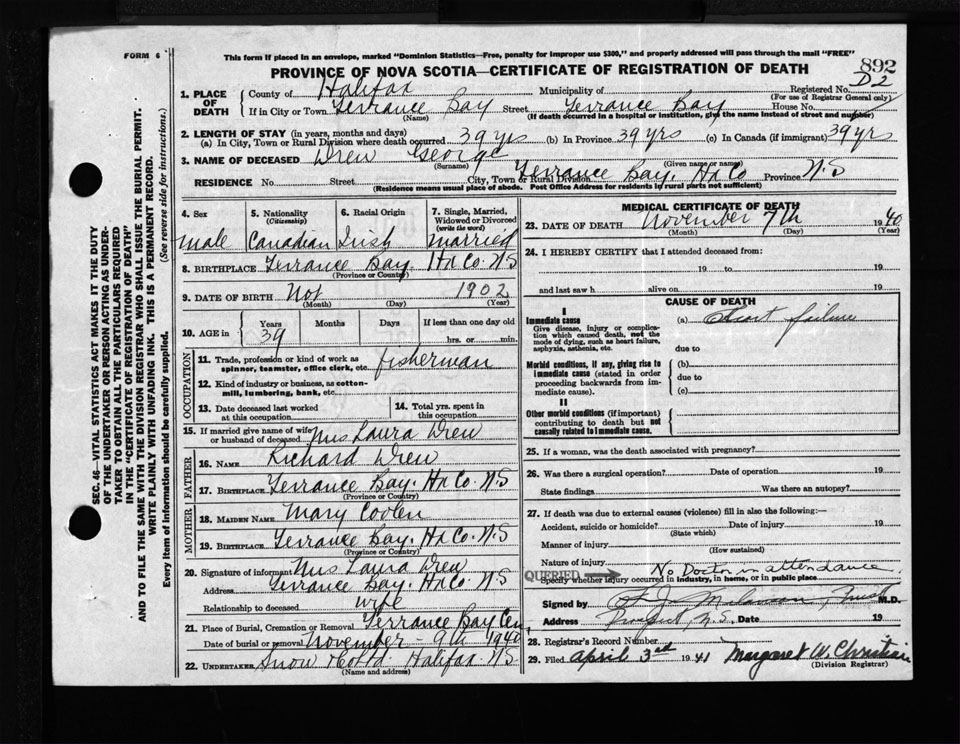 FORM 6
This form if placed in an envelope, marked "Dominion Statistics—Free, penalty for improper use $300," and properly addressed will pass through the mail "FREE"
PROVINCE OF NOVA SCOTIA—CERTIFICATE OF REGISTRATION OF DEATH
892
D2
1. PLACE OF DEATH
County of Halifax Municipality of Registered No.
(For use of Registrar General only)
If in City or Town Terrance Bay Street Terrance Bay House No.
(Name) (If death occurred in a hospital or institution, give the name instead of street and number)
2. LENGTH OF STAY (in years, months and days)
(a) In City, Town or Rural Division where death occurred 39 yrs (b) In Province 39 yrs (c) In Canada (if immigrant) 39 yrs
3. NAME OF DECEASED Drew George
(Surname) (Given name or names)
RESIDENCE No. Street City, Town or Rural Division Terrance Bay. Hx Co Province N.S
(Residence means usual place of abode. Post Office Address for residents in rural parts not sufficient)
4. Sex male
5. Nationality (Citizenship) Canadian
6. Racial Origin Irish
7. Single, Married, Widowed or Divorced (write the word) married
8. BIRTHPLACE Terrance Bay. Hx Co. N S
(Province or Country)
9. DATE OF BIRTH Not 1902
(Month) (Day) (Year)
10. AGE in Years 39 Months Days If less than one day old
hrs. or min.
OCCUPATION
11. Trade, profession or kind of work as spinner, teamster, office clerk, etc. fisherman
12. Kind of industry or business, as cotton-mill, lumbering, bank, etc.
13. Date deceased last worked at this occupation
14. Total yrs. spent in this occupation
15. If married give name of wife or husband of deceased Mrs Laura Drew
FATHER
16. NAME Richard Drew
17. BIRTHPLACE Terrance Bay. Hx Co. N.S
(Province or Country)
MOTHER
18. MAIDEN NAME Mary Coolen
19. BIRTHPLACE Terrance Bay. Hx Co. N.S
(Province or Country)
20. Signature of informant Mrs Laura Drew
Address Terrance Bay. Hx Co. N S
Relationship to deceased wife
21. Place of Burial, Cremation or Removal Terrance Bay Cem
Date of burial or removal November - 9th 1940
22. UNDERTAKER Snow Co Ltd. Halifax. N S
(Name and address)
MEDICAL CERTIFICATE OF DEATH
23. DATE OF DEATH November 7th 1940
(Month) (Day) (Year)
24. I HEREBY CERTIFY that I attended deceased from:
19 to 19
and last saw h alive on 19
CAUSE OF DEATH
I
Immediate cause (a) Heart failure
Give disease, injury or complication which caused death, not the mode of dying, such as heart failure, asphyxia, asthenia, etc.
due to
Morbid conditions, if any, giving rise to immediate cause (stated in order proceeding backwards from immediate cause).
(b)
due to
(c)
II
Other morbid conditions (if important) contributing to death but not causally related to immediate cause.
25. If a woman, was the death associated with pregnancy?
26. Was there a surgical operation? Date of operation 19
State findings Was there an autopsy?
27. If death was due to external causes (violence) fill in also the following:—
Accident, suicide or homicide? Date of injury 19
(State which)
Manner of injury
(How sustained)
Nature of injury No Doctor in attendance.
QUERIED
Specify whether injury occurred in industry, in home, or in public place
Signed by M.D.
Address Prospect, N.S. Date 19
28. Registrar's Record Number
29. Filed April 3rd 1941 Margaret W. Christian
(Division Registrar)
SEC. 46—VITAL STATISTICS ACT MAKES IT THE DUTY
OF THE UNDERTAKER OR PERSON ACTING AS UNDER-
TAKER TO OBTAIN ALL THE PARTICULARS REQUIRED
IN THE "CERTIFICATE OF REGISTRATION OF DEATH"
AND TO FILE THE SAME WITH THE DIVISION REGISTRAR WHO SHALL ISSUE THE BURIAL PERMIT.
WRITE PLAINLY WITH UNFADING INK. THIS IS A PERMANENT RECORD.
Every item of information should be carefully supplied. (See reverse side for instructions.)